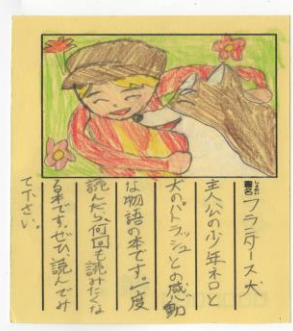 しょめい
書名 フランダース犬
主人公の少年ネロと
犬のパトラッシュとの感動
な物語の本です。一度
読んだら、何回も読みたくな
る本です。ぜひ、読んでみ
て下さい。